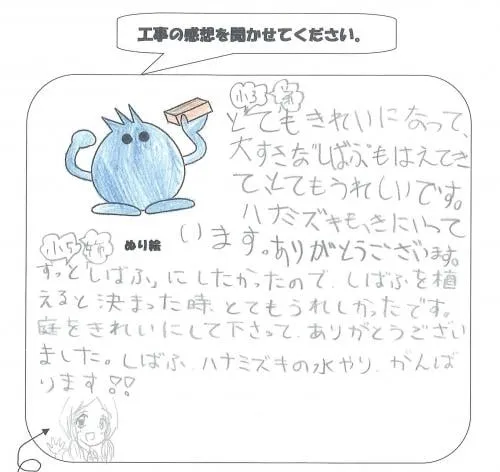 工事の感想を聞かせてください。
小3 妹
とてもきれいになって、
大すきな「しばふ」もはえてき
てとてもうれしいです。
ハナミズキも、きにいって
います。ありがとうございます。
ぬり絵
小5 姉
ずっと「しばふ」にしたかったので、しばふを植
えると決まった時、とてもうれしかったです。
庭をきれいにして下さって、ありがとうござい
ました。しばふ、ハナミズキの水やり、がんば
ります!!